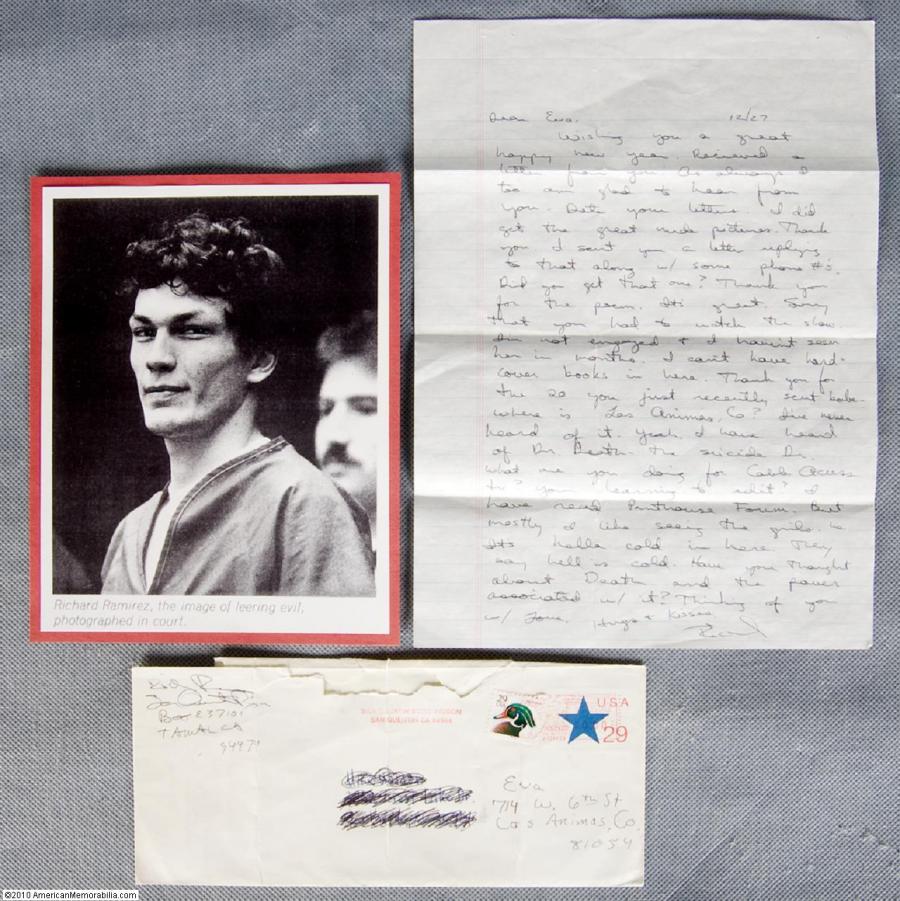 Dear Eva, 12/27
Wishing you a great
happy new year. Recieved a
letter from you. As always I
too am glad to hear from
you. Date your letters. I did
get the great nude pictures. Thank
you I sent you a letter replying
to that along w/ some phone #'s.
Did you get that one? Thank you
for the poem. It's great. Sorry
that you had to watch the show
I'm not engaged & I havin't seen
her in months. I can't have hard-
cover books in here. Thank you for
the 20 you just recently sent
where is Las Animas, Co? I've never
heard of it. Yeah. I have heard
of Dr. Death. the suicide Dr.
What are you doing for Cable Access
tv? your learning to edit? I
have read Penthouse Forum. But
mostly I like seeing the girls.
It's hella cold in here. They
say hell is cold. Have you thought
about Death and the power
associated w/ it? Thinking of you
w/ Love. Hugs & Kisses
Richard Ramirez, the image of leering evil,
photographed in court.
Box E37101
TAMAL CA
SAN QUENTIN CA
29
USA
29
Eva
714 W. 6th St
Las Animas, Co.
81054
©2010 AmericanMemorabilia.com